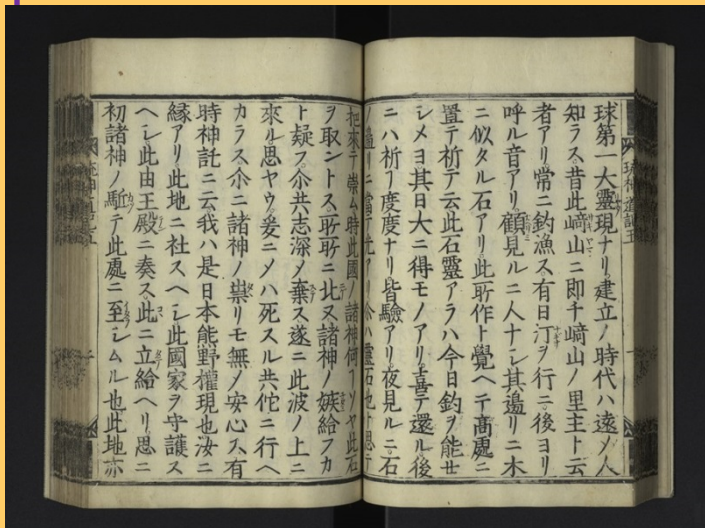 球第一大靈現ナリ建立ノ時代ハ遠ノ人
知ラス昔此﨑山ニ即千﨑山ノ里主ト云
者アリ常ニ釣漁ス有日汀ヲ行ニ後ヨリ
呼ル音アリ顧見ルニ人ナシ其邉リニ木
ニ似タル石アリ此所作ト覺ヘテ高處ニ
置テ祈テ云此石靈アラハ今日釣ヲ能セ
シメヨ其日大ニ得モノアリ喜テ還ル後
ニハ祈フ度度ナリ皆驗アリ夜見ルニ石
ノ邉リニ當テ光アリ令ハ靈石也ト思テ
把來テ崇ム時此國ノ諸神何
ソヤ此石
ヲ取ントス所所ニ北又諸神ノ嫉給フカ
ト疑フ尒共志深ノ棄ス遂ニ此波ノ上ニ
來ル思ヤウ爰ニメハ死スル共佗ニ行ヘ
カラス尒ニ諸神ノ祟リモ無ノ安心ス有
時神託ニ云我ハ是日本熊野權現也汝ニ
緣アリ此地ニ社スヘシ此國家ヲ守護ス
ヘシ此由王殿ニ奏ス此ニ立給ヘリ思ニ
初諸神ノ
テ此處ニ至シムル也此地亦